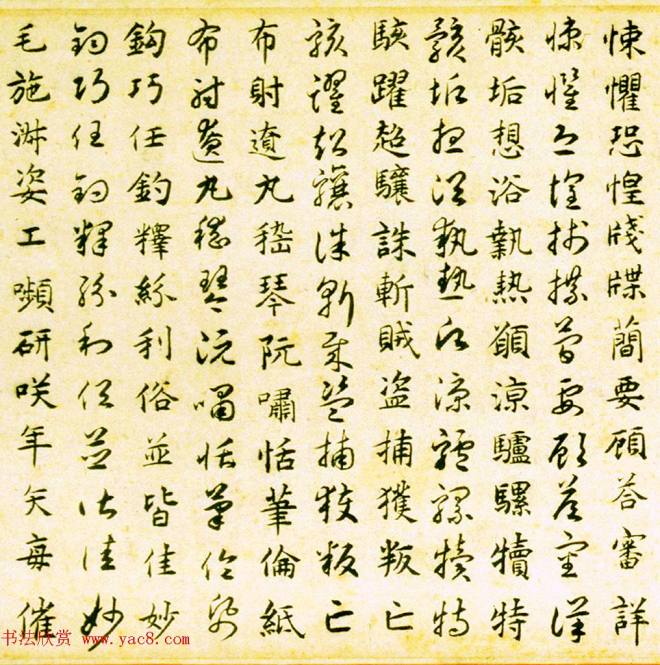 悚懼恐惶牋牒簡要顧荅審詳
悚懼恐惶牋牒簡要顧荅審詳
骸垢想浴執熱願涼驢騾犢特
骸垢想浴執熱願涼驢騾犢特
駭躍超驤誅斬賊盗捕獲叛亡
駭躍超驤誅斬賊盗捕獲叛亡
布射遼丸嵇琴阮嘯恬筆倫紙
布射遼丸嵇琴阮嘯恬筆倫紙
鈎巧任釣釋紛利俗並皆佳妙
鈎巧任釣釋紛利俗並皆佳妙
毛施淑姿工嚬研咲年矢每催
书法欣赏 www.yac8.com